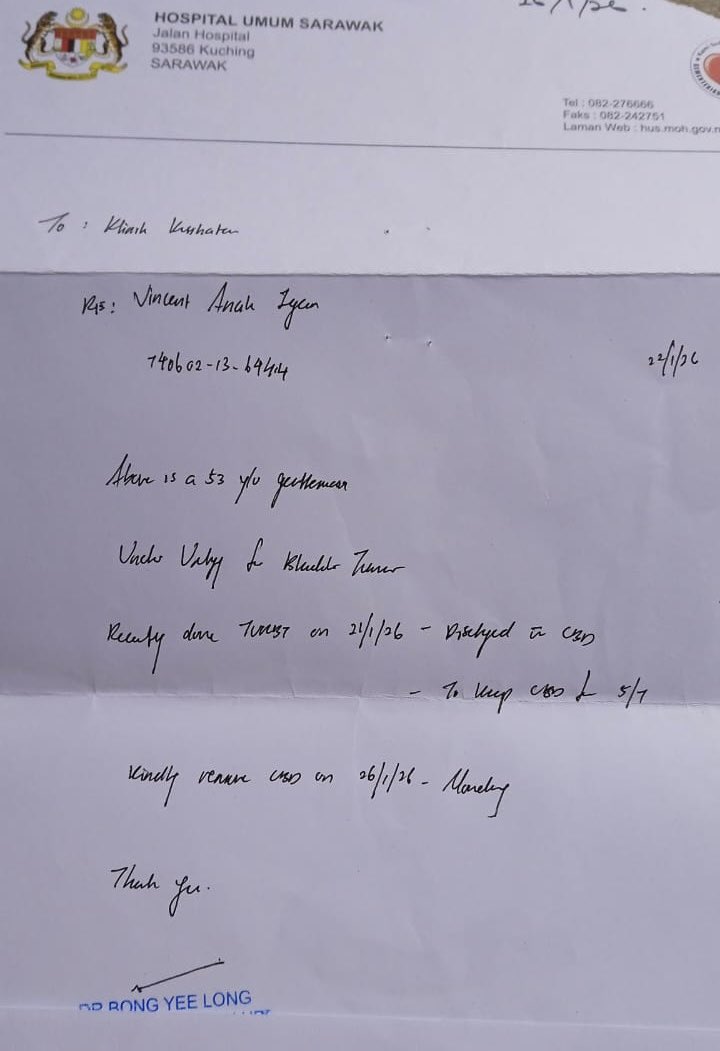 26/1/26.
HOSPITAL UMUM SARAWAK
Jalan Hospital
93586 Kuching
SARAWAK
Tel : 082-276666
Faks : 082-242751
Laman Web : hus.moh.gov.m
To : Klinik Kesihatan
Rs: Vincent Anak
740602-13-6444
22/1/26
Above is a 53 y/o gentleman
Under Urology for Bladder Tumor
Recently done TURBT on 21/1/26 - Discharged c̄ CBD
- To keep CBD for 5/7
Kindly remove CBD on 26/1/26 - Monday
Thank you.
DR BONG YEE LONG